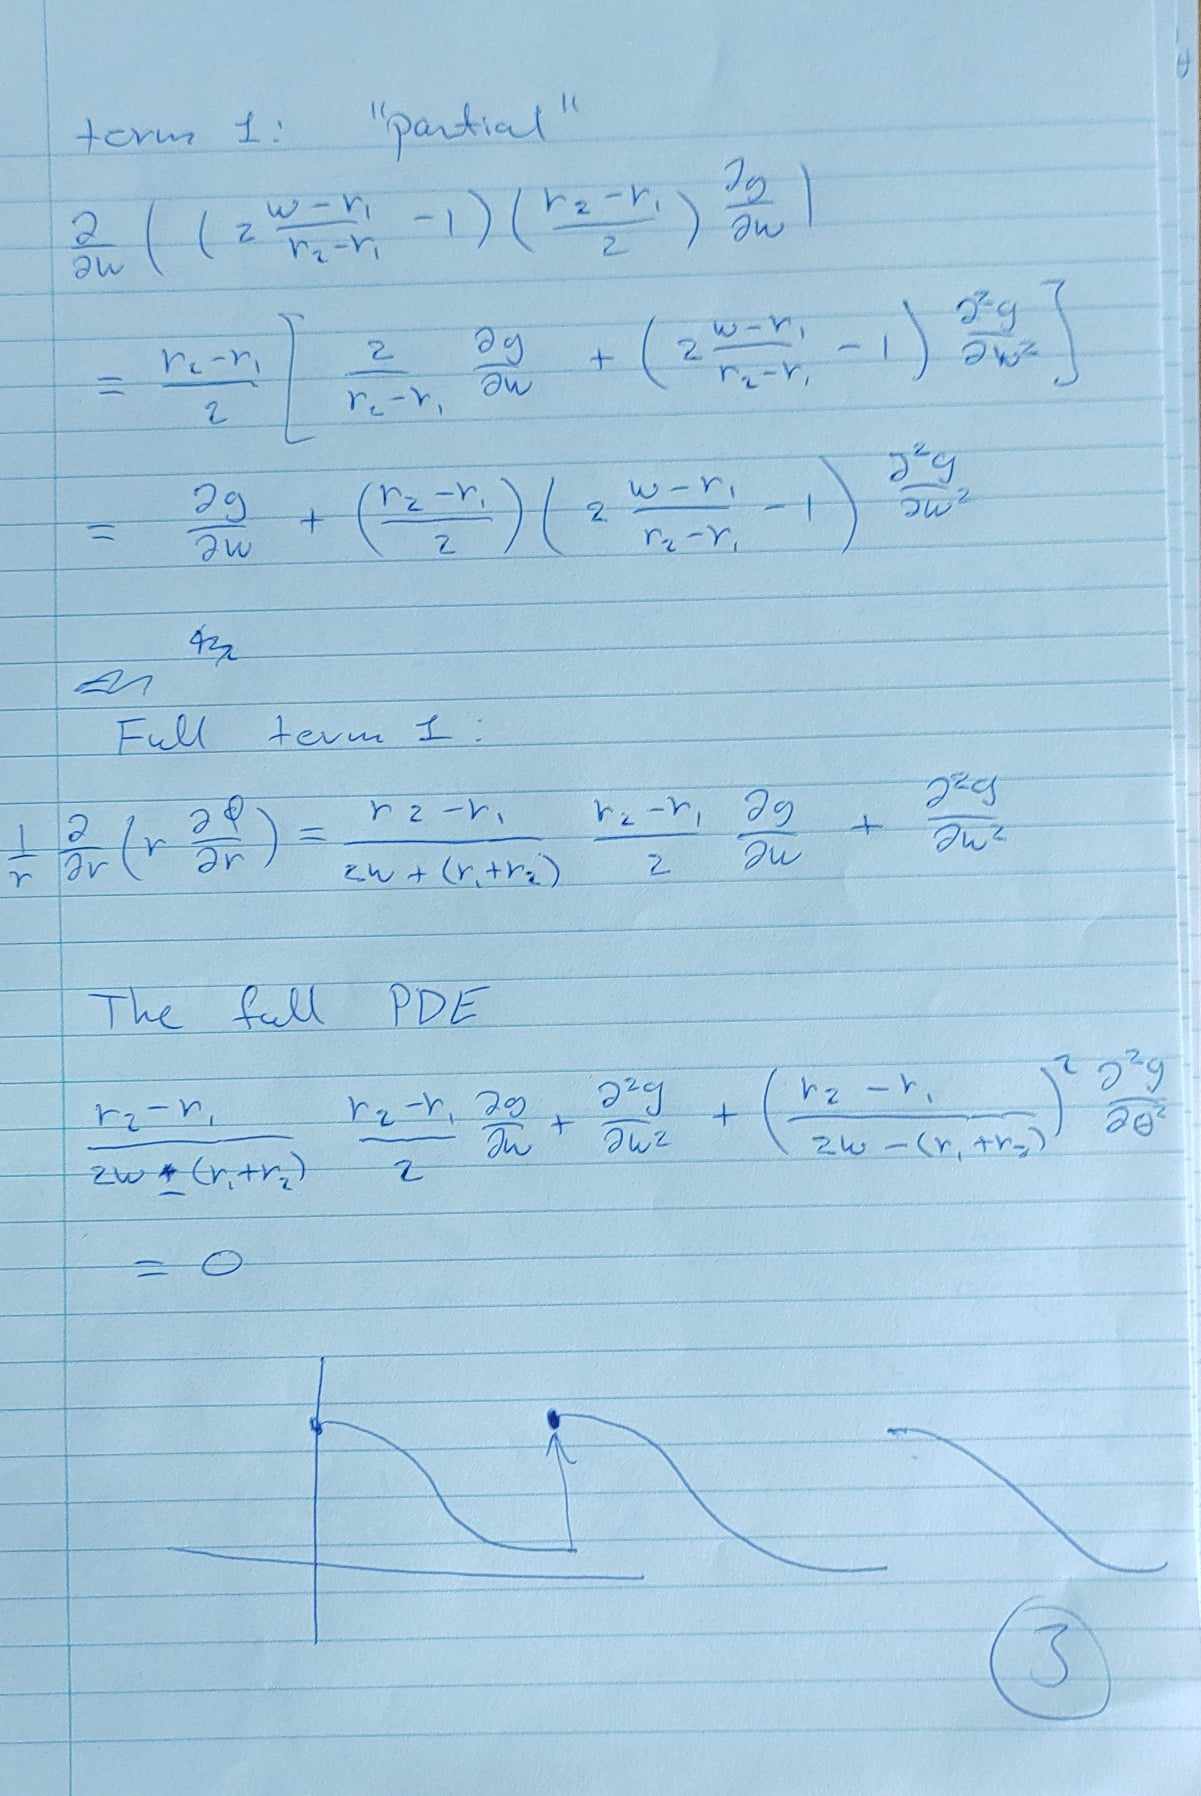 term 1: "partial"
∂/∂w ( (2 (w-r₁)/(r₂-r₁) - 1) ((r₂-r₁)/2) ∂g/∂w )
= (r₂-r₁)/2 [ 2/(r₂-r₁) ∂g/∂w + (2 (w-r₁)/(r₂-r₁) - 1) ∂²g/∂w² ]
= ∂g/∂w + ((r₂-r₁)/2) (2 (w-r₁)/(r₂-r₁) - 1) ∂²g/∂w²
Full term 1:
1/r ∂/∂r (r ∂φ/∂r) = (r₂-r₁)/(2w+(r₁+r₂)) (r₂-r₁)/2 ∂g/∂w + ∂²g/∂w²
The full PDE
(r₂-r₁)/(2w-(r₁+r₂)) (r₂-r₁)/2 ∂g/∂w + ∂²g/∂w² + ((r₂-r₁)/(2w-(r₁+r₂)))² ∂²g/∂θ²
= 0
3